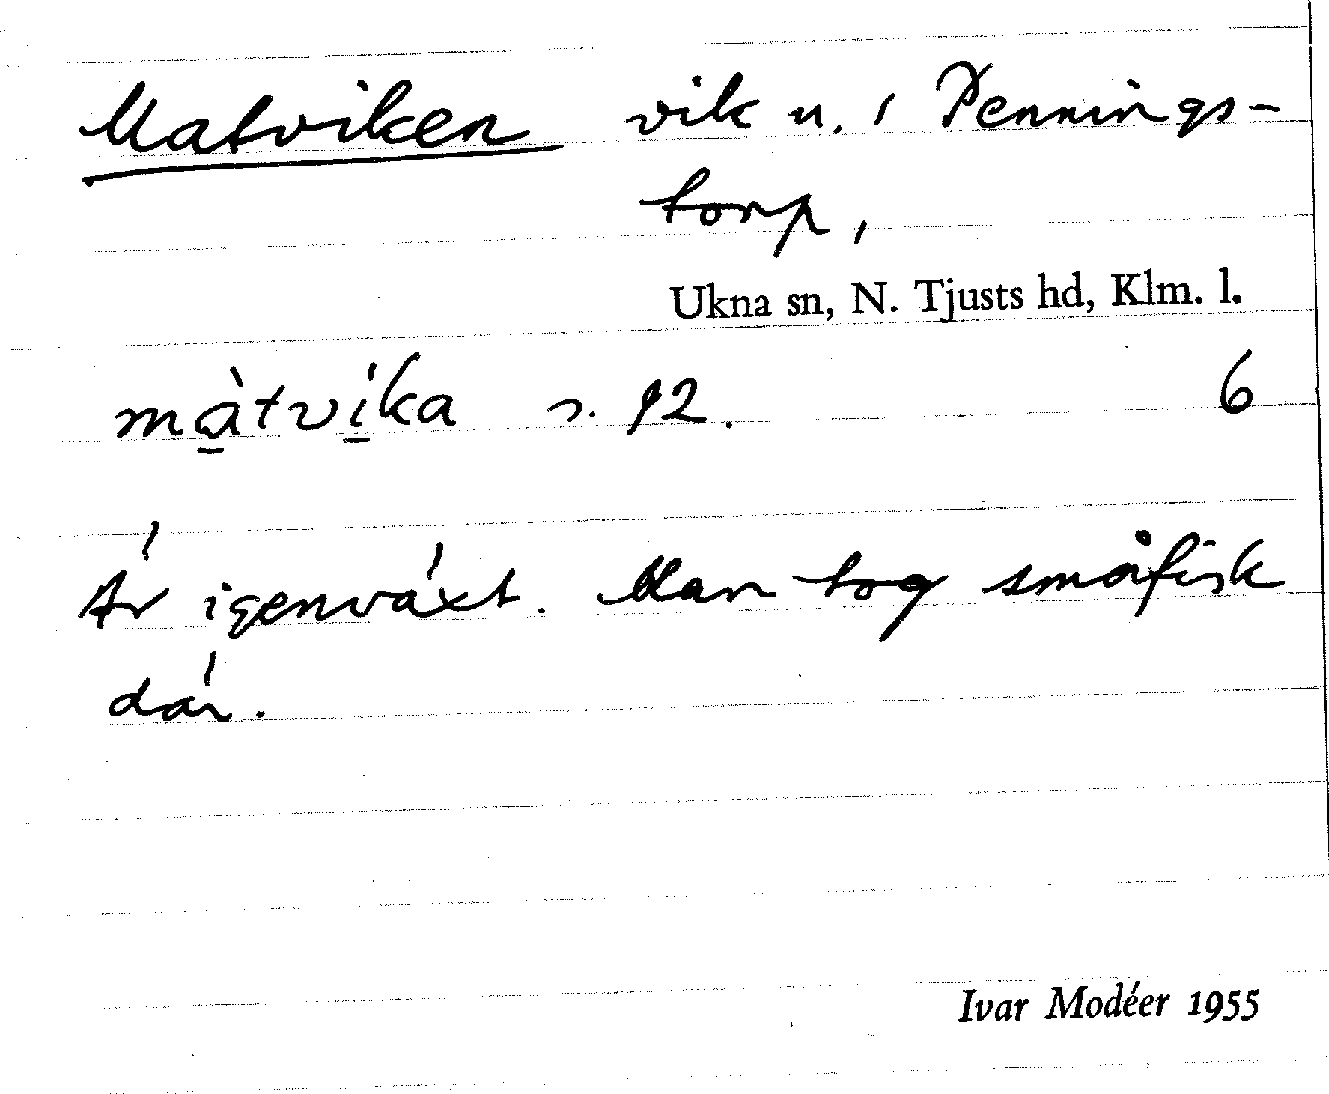 Matviken vik u. i Pennings-
torp,
Ukna sn, N. Tjusts hd, Klm. l.
màtvíka s. 92. 6
Är igenväxt. Man tog småfisk
där.
Ivar Modéer 1955